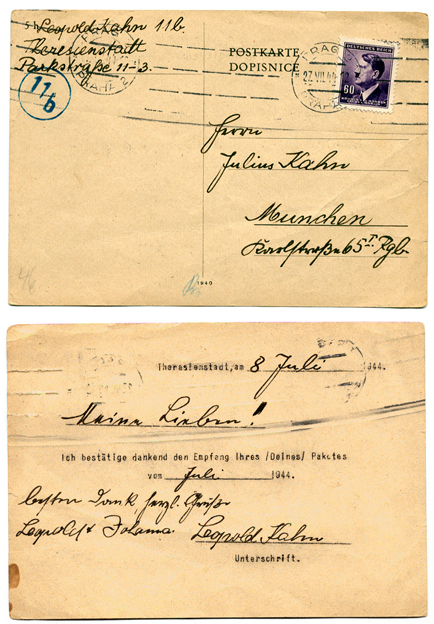 Leopold Kahn 11b.
Theresienstadt
Parkstraße 11-3.
11/b
PRAHA 2
POSTKARTE
DOPISNICE
DEUTSCHES REICH
60
PRAG
27.VII.44
Herrn
Julius Kahn
München
Karlstraße 65 I. Rgb.
1940
Theresienstadt, am 8 Juli 1944.
Meine Lieben!
Ich bestätige dankend den Empfang Ihres /Deines/ Paketes
vom Juli 1944.
besten Dank herzl. Grüße
Leopold & Johanna. Leopold Kahn
Unterschrift.